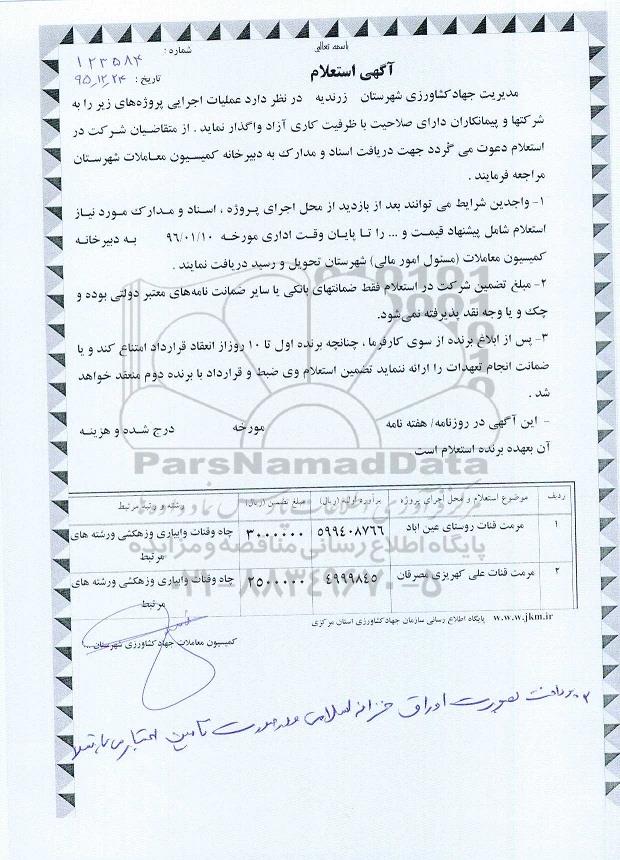 باسمه تعالی
شماره: ۱۲۳۵۸۴
آگهی استعلام
تاریخ: ۹۵,۱۲,۲۴
مدیریت جهادکشاورزی شهرستان زرندیه در نظر دارد عملیات اجرایی پروژه‌های زیر را به
شرکتها و پیمانکاران دارای صلاحیت با ظرفیت کاری آزاد واگذار نماید . از متقاضیان شرکت در
استعلام دعوت می گردد جهت دریافت اسناد و مدارک به دبیرخانه کمیسیون معاملات شهرستان
مراجعه فرمایند .
۱- واجدین شرایط می توانند بعد از بازدید از محل اجرای پروژه ، اسناد و مدارک مورد نیاز
استعلام شامل پیشنهاد قیمت و ... را تا پایان وقت اداری مورخه ۹۶/۰۱/۱۰ به دبیرخانه
کمیسیون معاملات (مسئول امور مالی) شهرستان تحویل و رسید دریافت نمایند .
۲- مبلغ تضمین شرکت در استعلام فقط ضمانتهای بانکی یا سایر ضمانت نامه‌های معتبر دولتی بوده و
چک و یا وجه نقد پذیرفته نمی‌شود.
۳- پس از ابلاغ برنده از سوی کارفرما ، چنانچه برنده اول تا ۱۰ روزاز انعقاد قرارداد امتناع کند و یا
ضمانت انجام تعهدات را ارائه ننماید تضمین استعلام وی ضبط و قرارداد با برنده دوم منعقد خواهد
شد .
- این آگهی در روزنامه/ هفته نامه مورخه درج شده و هزینه
آن بعهده برنده استعلام است
ParsNamadData
ردیف موضوع استعلام و محل اجرای پروژه برآورد اولیه (ریال) مبلغ تضمین (ریال) رشته و رتبه مرتبط
۱ مرمت قنات روستای عین اباد ۵۹۹۴۰۸۷۶۶ ۳۰۰۰۰۰۰ چاه وقنات وابیاری وزهکشی ورشته های
مرتبط
پایگاه اطلاع رسانی مناقصه و مزایده
۲ مرمت قنات علی کهریزی مصرقان ۴۹۹۹۸۴۵ ۲۵۰۰۰۰۰ چاه وقنات وابیاری وزهکشی ورشته های
مرتبط
۰۲۱-۸۸۳۴۹۶۷۰-۵
www.jkm.ir پایگاه اطلاع رسانی سازمان جهادکشاورزی استان مرکزی
کمیسیون معاملات جهادکشاورزی شهرستان ...
پرداخت بصورت اوراق خزانه اسلامی و در صورت تامین اعتبار می باشد